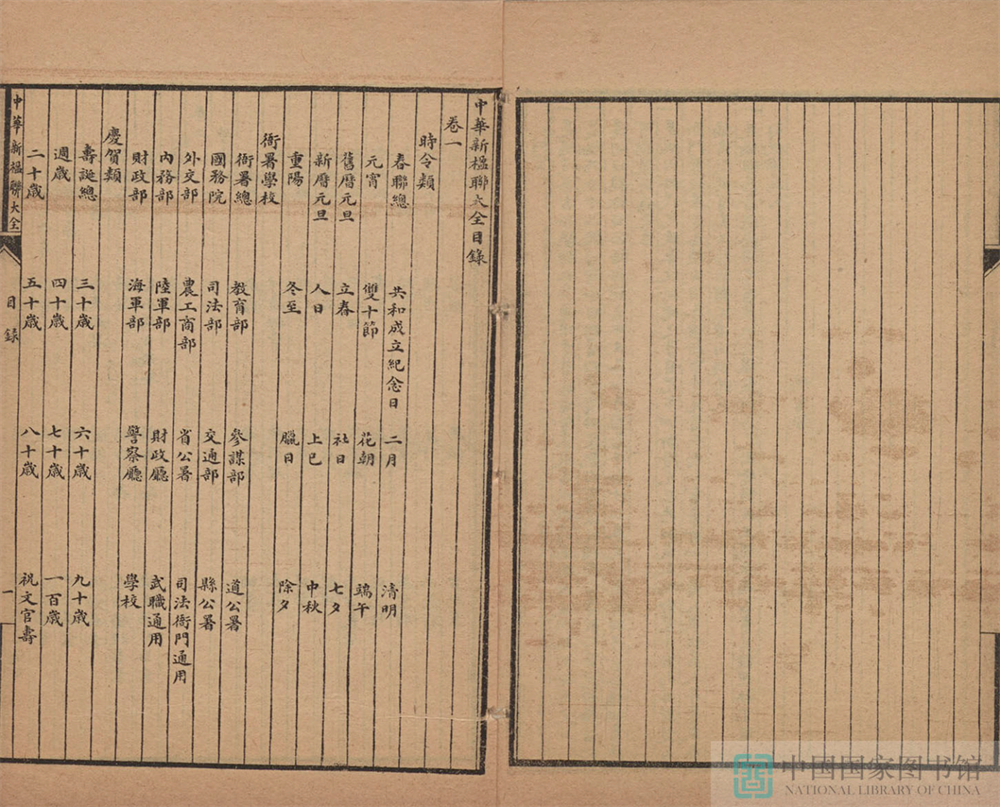 中華新楹聯大全目錄
卷一
時令類
春聯總 共和成立紀念日 二月 清明
元宵 雙十節 花朝 端午
舊曆元旦 立春 社日 七夕
新曆元旦 人日 上巳 中秋
重陽 冬至 臘日 除夕
衙署學校
衙署總 教育部 參謀部 道公署
國務院 司法部 交通部 縣公署
外交部 農工商部 省公署 司法衙門通用
內務部 陸軍部 財政廳 武職通用
財政部 海軍部 警察廳 學校
慶賀類
壽誕總 三十歲 六十歲 九十歲
週歲 四十歲 七十歲 一百歲
二十歲 五十歲 八十歲 祝文官壽
中華新楹聯大全 目錄 一
中国国家图书馆
NATIONAL LIBRARY OF CHINA